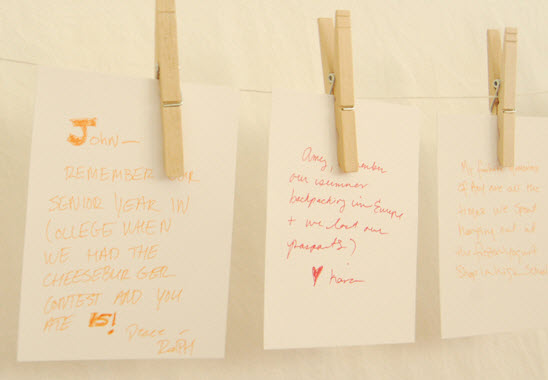 John—
REMEMBER OUR
SENIOR YEAR IN
COLLEGE WHEN
WE HAD THE
CHEESEBURGER
CONTEST AND YOU
ATE 15!
Peace –
RALPH
Amy,
our summer
backpacking in Europe
+ we lost our
passports?
♥ Kara
My
of Amy are all the
times we spent
hanging out at
the frozen yogurt
Shop in High School